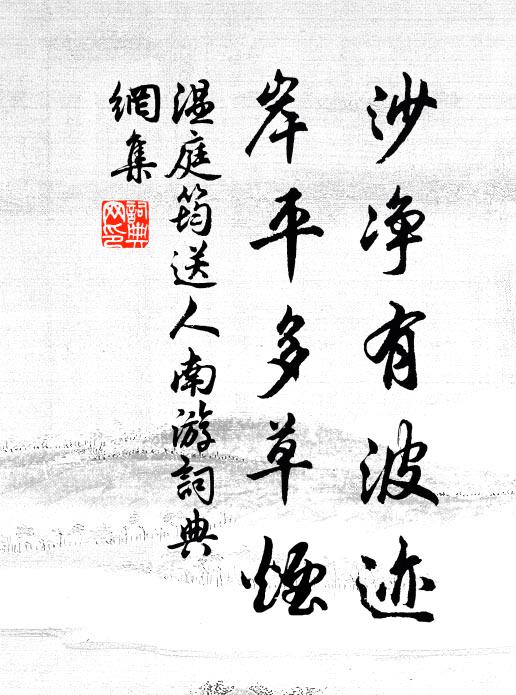 沙净有波迹
岸平多草煙
温庭筠送人南游詞典
網集
詞典
网印